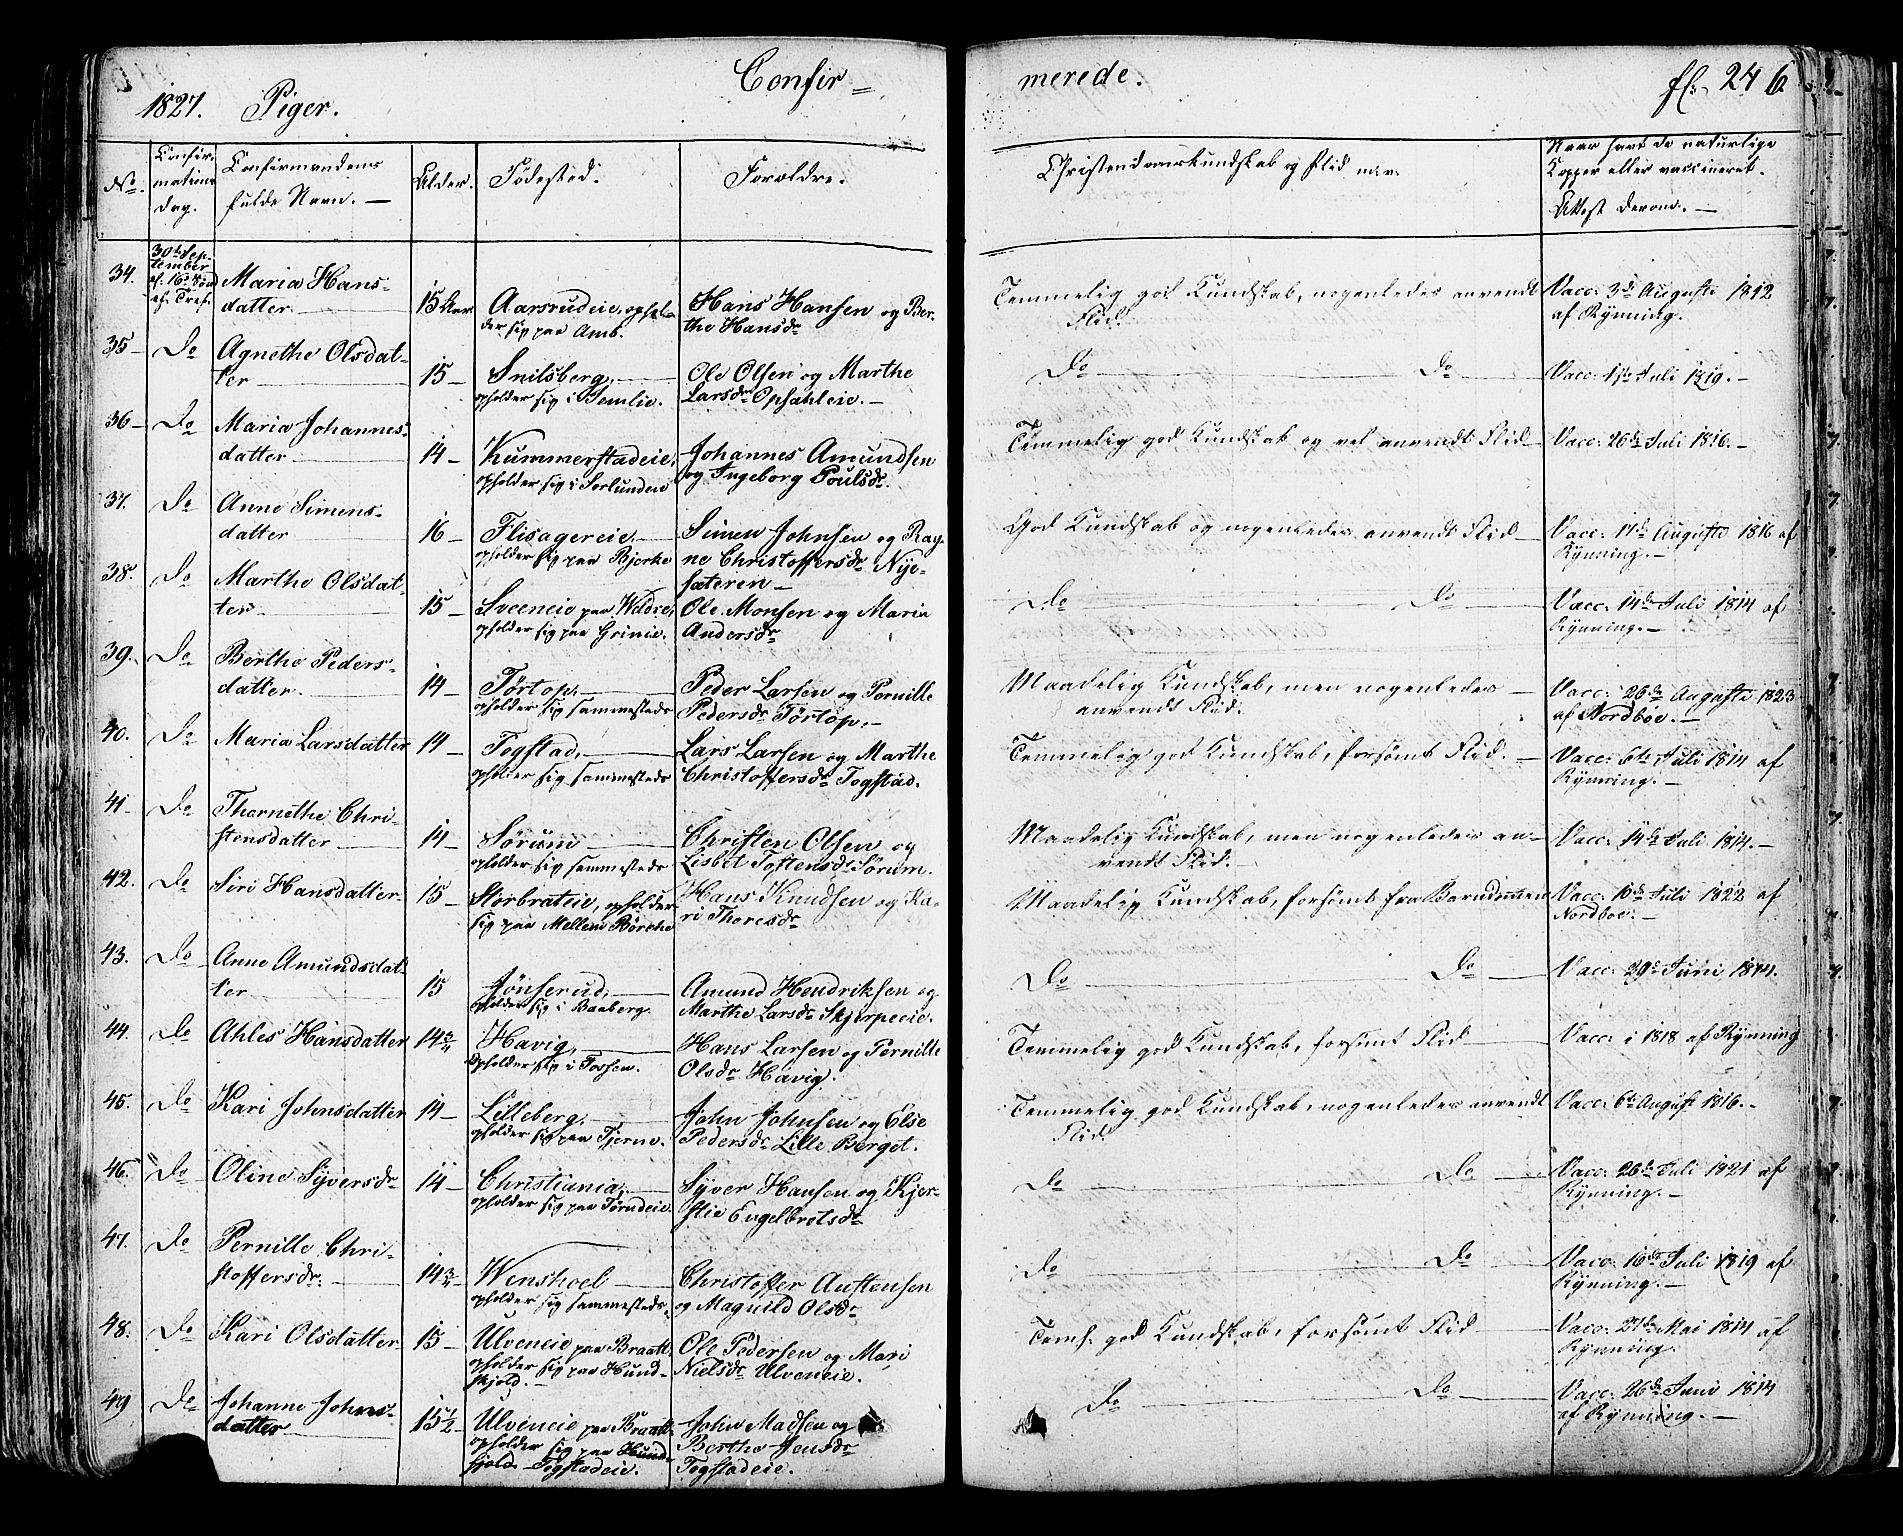 1827. Piger. Confir= merede. fl: 246
No. Confir- mations Dag. Confirmandens fulde Navn. — Alder. Fødested. Forældre. Christendomskundskab og Flid m. v. Naar havt de naturlige Kopper eller vaccineret. Attest derom. —
34. 30te September ef. 16de Maria Hans-
datter. — 15 Aar Aarsrudeie, ophol-
der sig paa Amb. Hans Hansen og Ber-
the Hansdr Temmelig god Kundskab, nogenledes anvendt
Flid. Vacc: 3de Augusti 1812
af Rynning.
35 — Do Agnethe Olsdat-
ter — 15 — Snilsberg, —
opholder sig i Semlie. Ole Olsen og Marthe
Larsdr Opsahleie. — Do — Do — Vacc: Juli 1819. —
36 — Do Maria Johannes-
datter — 14 — Kummerstadeie,
opholder sig i Sorlundeie Johannes Amundsen
og Ingeborg Poulsdr Temmelig god Kundskab og vel anvendt Flid — Vacc: 26de Juli 1816. —
37. Do Anne Simens-
datter 16 — Flisagereie —
opholder sig paa Bjerke Simen Johnsen og Rag-
ne Christoffersdr Nye-
sæteren — God Kundskab og nogenledes anvendt Flid — Vacc: 17de Augusti 1816 af
Rynning. —
38. Do Marthe Olsdat-
ter — 15 — Sveeneie paa Veldre,
opholder sig paa Grinie. Ole Monsen og Maria
Andersdr Do — Do — Vacc: 14de Juli 1814 af
Rynning. —
39. Do Berthe Peders-
datter. — 14 — Tørtop, —
opholder sig sammesteds Peder Larsen og Pernille
Pedersdr Tørtop. — Maadelig Kundskab, men nogenledes —
anvendt Flid. Vacc: 26de Augusti 1823
af Nordboe. —
40. Do Maria Larsdatter 14 — Togstad, —
opholder sig sammesteds Lars Larsen og Marthe
Christoffersdr Togstad. Temmelig god Kundskab, forsømt Flid. — Vacc: 6te Juli 1814 af
Rynning. —
41 — Do Thornethe Chri-
stensdatter — 14 — Sørum —
opholder sig sammesteds Christen Olsen og
Lisbet Tostensdr Sørum. Maadelig Kundskab, men nogenledes an-
vendt Flid. — Vacc: 14de Juli 1814. —
42. Do Siri Hansdatter 15 — Storbrateie, opholder
sig paa Mellem Børche Hans Knudsen og Ka-
ri Thoresdr Maadelig Kundskab, forsømt fra Barndommen Vacc: 10de Juli 1822 af
Nordboe. —
43. Do Anne Amundsdat-
ter — 15 Jønserud, —
opholder sig i Baaberg. Amund Hendriksen og
Marthe Larsdr Skjerpeeie. Do — Do — Vacc: 29de Juni 1814.
44. Do Ahles Hansdatter 14 3/4 Havig, —
opholder sig i Tossen. Hans Larsen og Pernille
Olsdr Havig. Temmelig god Kundskab, forsømt Flid — Vacc: i 1818 af Rynning
45. Do Kari Johnsdatter 14 — Lilleberg, —
opholder sig paa Tjerne. John Johnsen og Else
Pedersdr Lille Berget. Temmelig god Kundskab, nogenledes anvendt
Flid. Vacc: 6te August 1816. —
46. Do Oline Syversdr 14 — Christiania, —
opholder sig paa Tørudeie. Syver Hansen og Kjer-
stie Engelbretsdr Do — Do — Vacc: 26de Juli 1821 af
Rynning. —
47. Do Pernille Chri-
stoffersdr: — 14 3/4 Wenshoel —
opholder sig sammesteds. Christoffer Austensen
og Magnild Olsdr Do — Do — Vacc: 16de Juli 1819 af
Rynning. —
48. Do Kari Olsdatter 15 — Ulveneie paa Braatt.
opholder sig paa Hund-
skjold. — Ole Pedersen og Mari
Nielsdr Ulveneie. Teml. god Kundskab, forsømt Flid — Vacc: 27de Mai 1814 af
Rynning.
49 Do Johanne Johns-
datter 15 1/2 Ulveneie paa Braatt.
opholder sig paa Hund-
skjold. — Togstadeie. John Madsen og
Berthe Jensdr
Togstadeie. Do — Do — Vacc: 26de Juni 1814
af Rynning. —